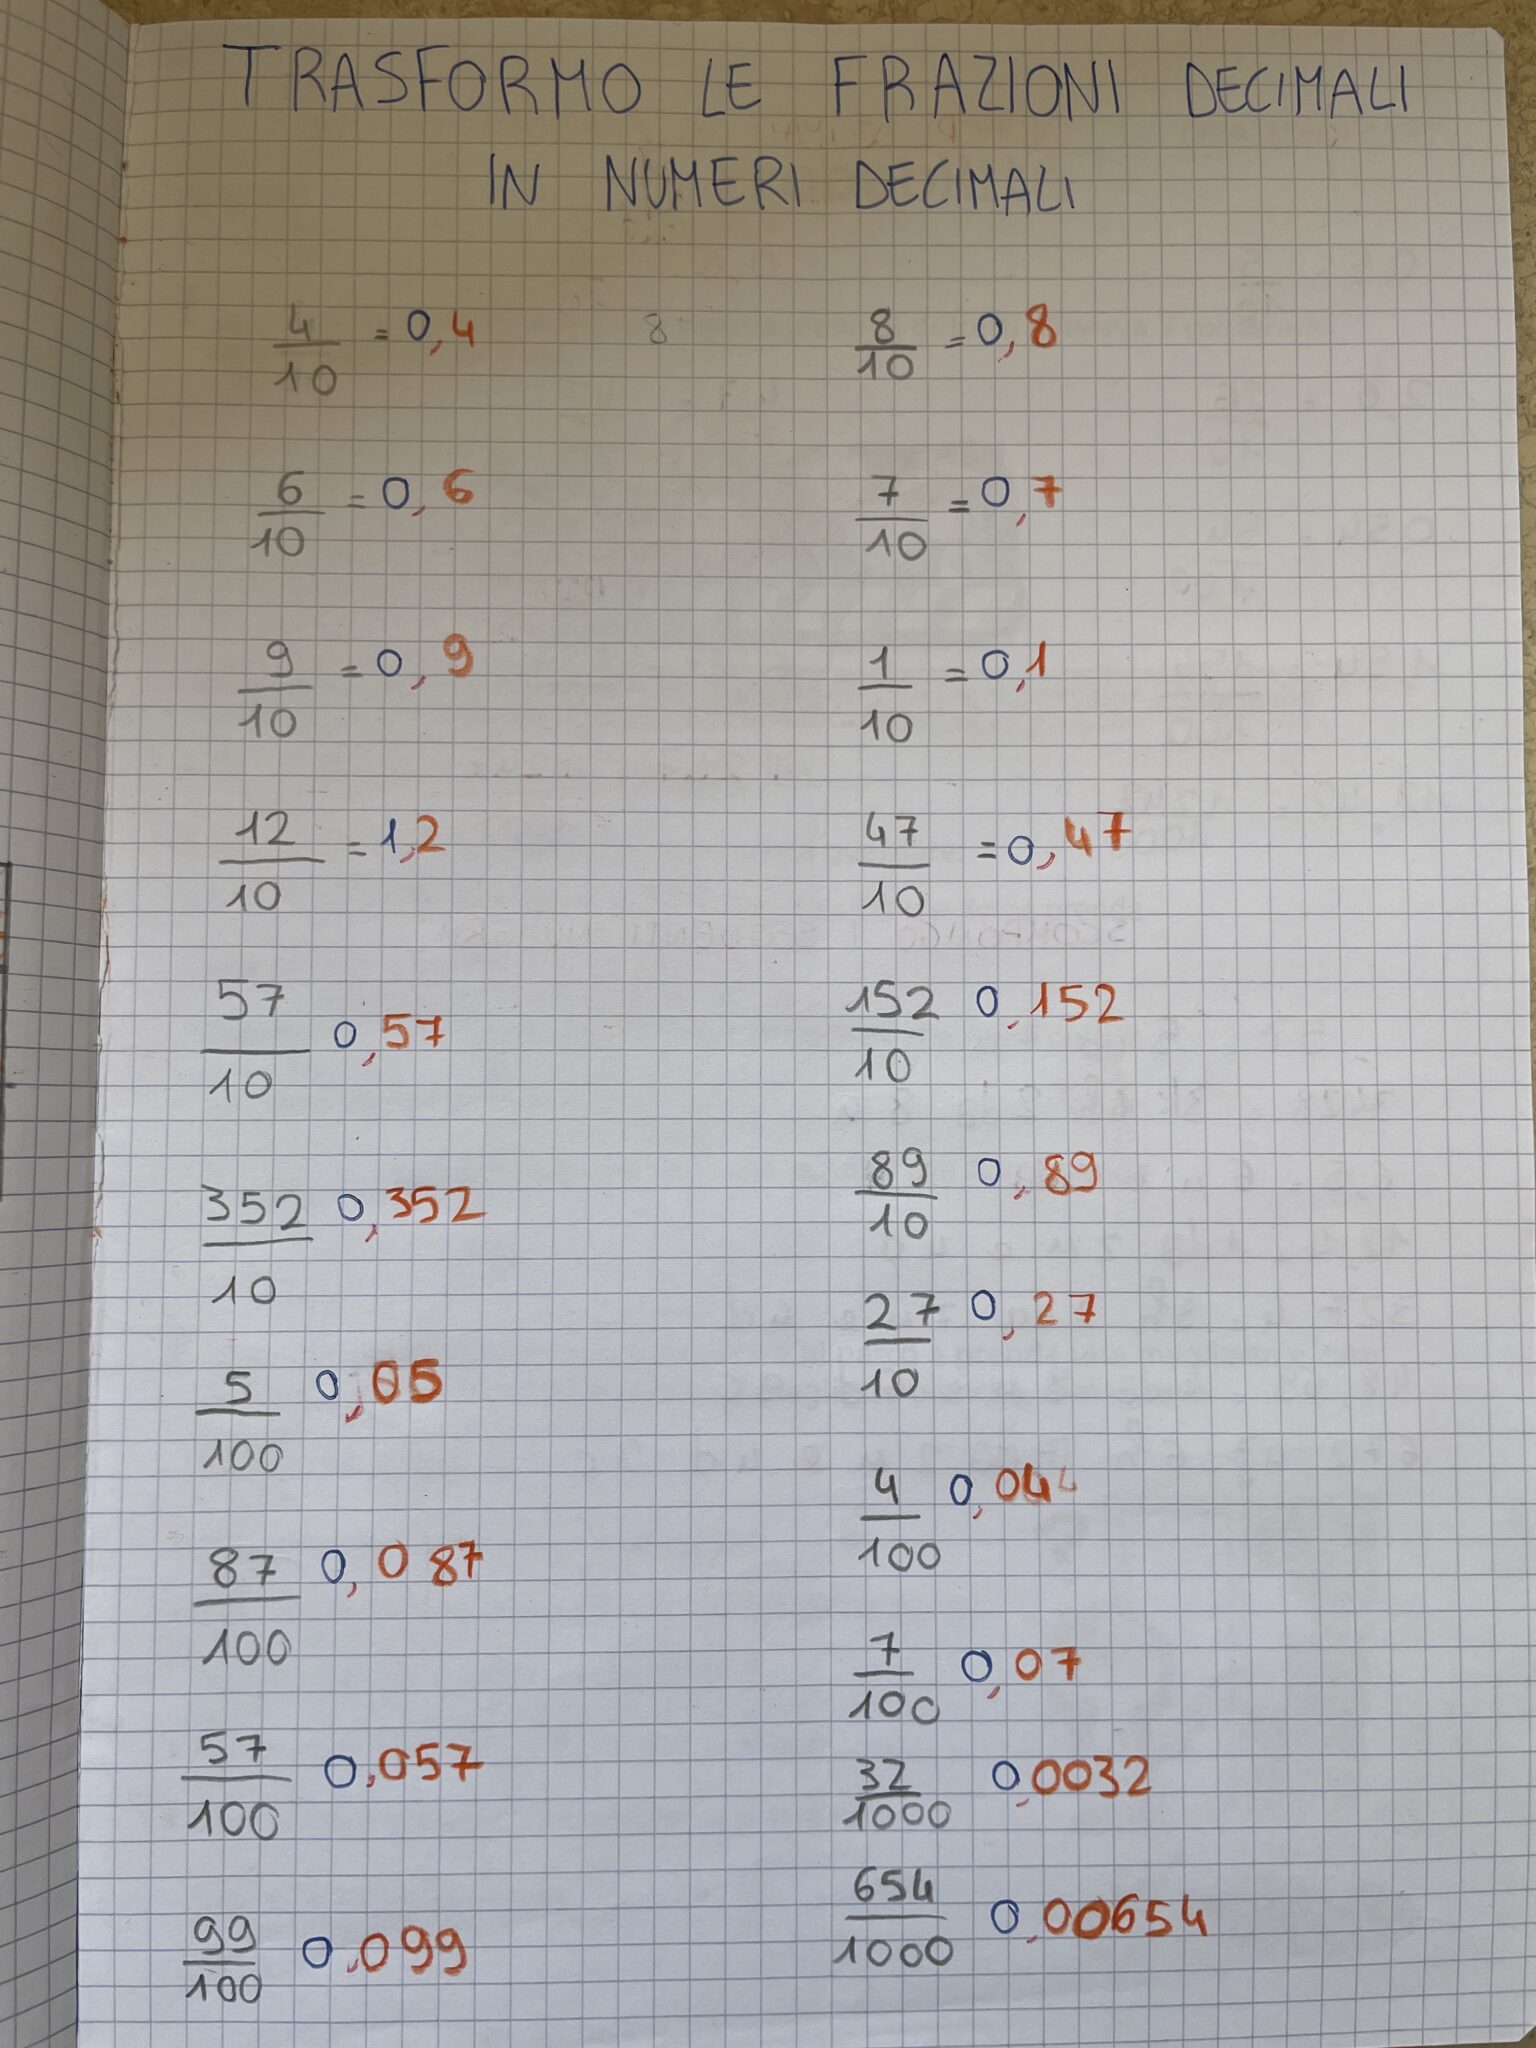 TRASFORMO LE FRAZIONI DECIMALI
IN NUMERI DECIMALI
4/10 = 0,4
8
8/10 = 0,8
6/10 = 0,6
7/10 = 0,7
9/10 = 0,9
1/10 = 0,1
12/10 = 1,2
47/10 = 0,47
57/10 0,57
152/10 0,152
352/10 0,352
89/10 0,89
27/10 0,27
5/100 0,05
4/100 0,04
87/100 0,087
7/100 0,07
57/100 0,057
32/1000 0,0032
99/100 0,099
654/1000 0,00654